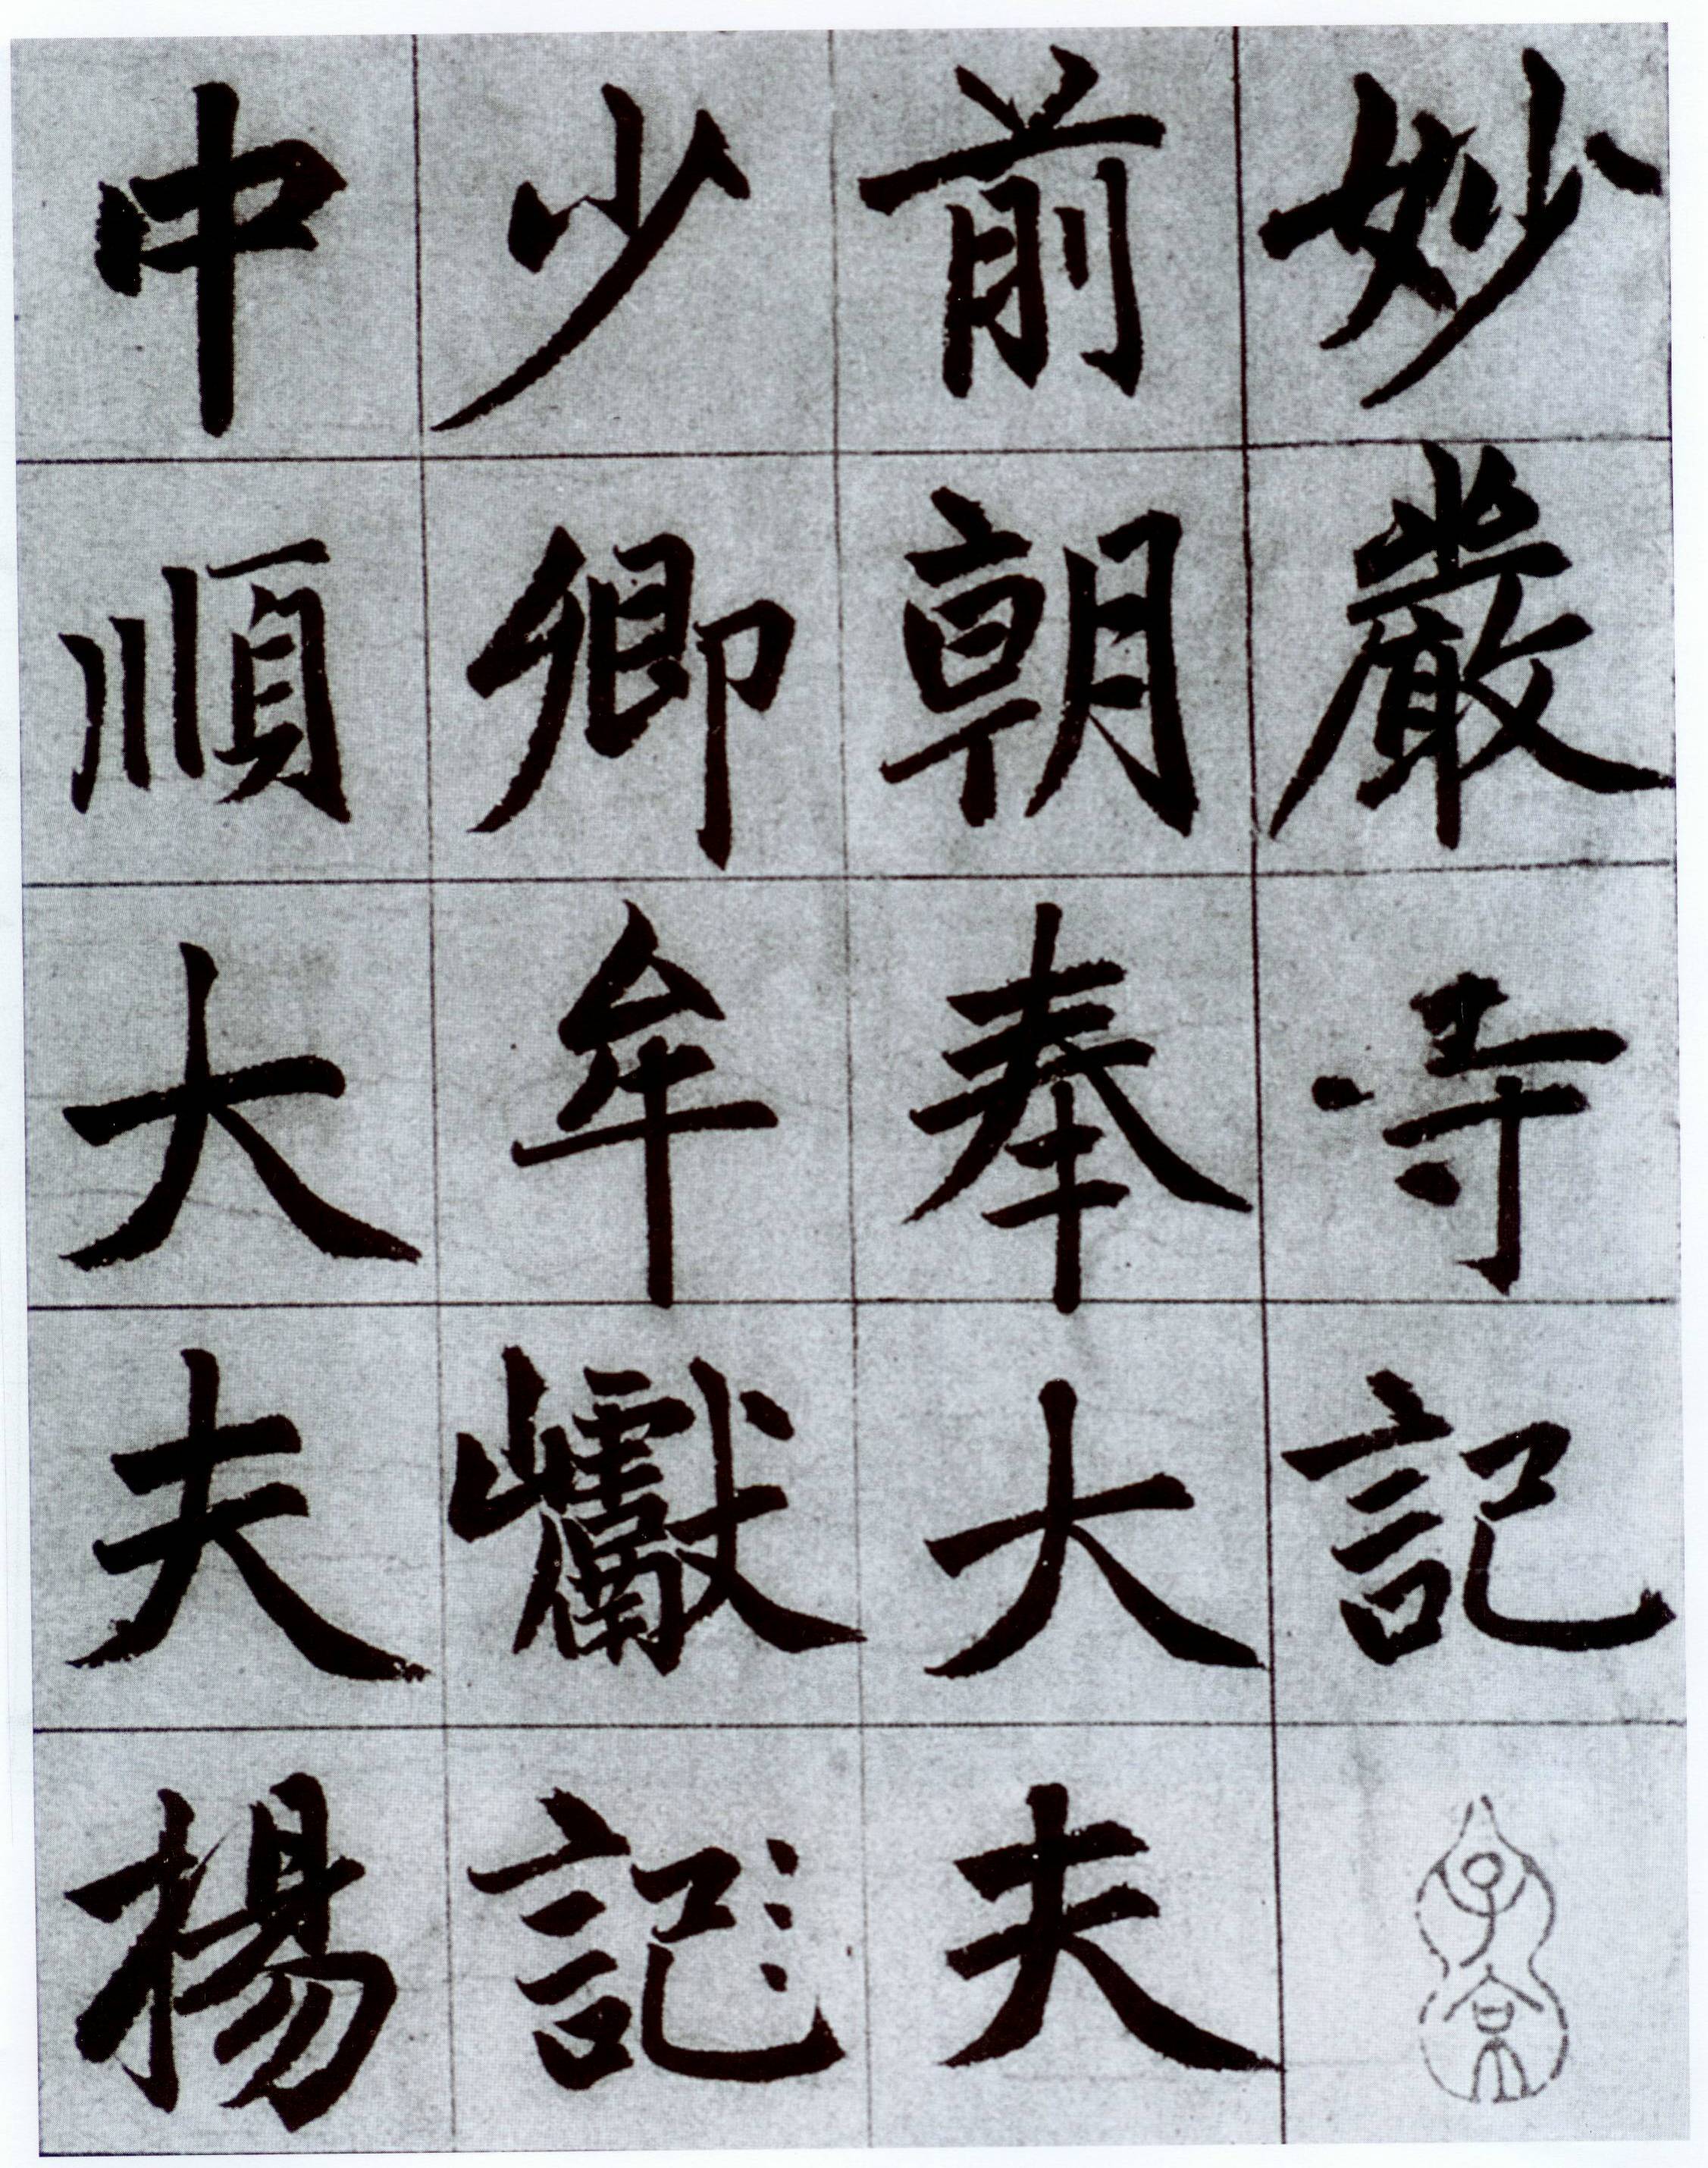 妙嚴寺記
子京
前朝奉大夫
少卿牟巘記
中順大夫揚